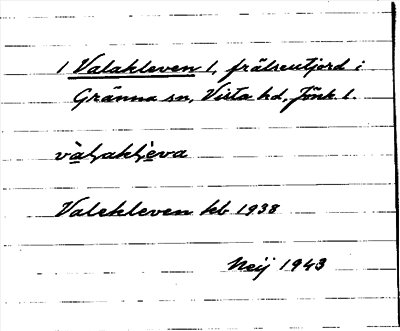 1 Valakleven 1, frälseutjord i
Gränna sn, Vista hd, Jönk l.
vàḷakḷeva
Valekleven kb 1938
Neij 1943